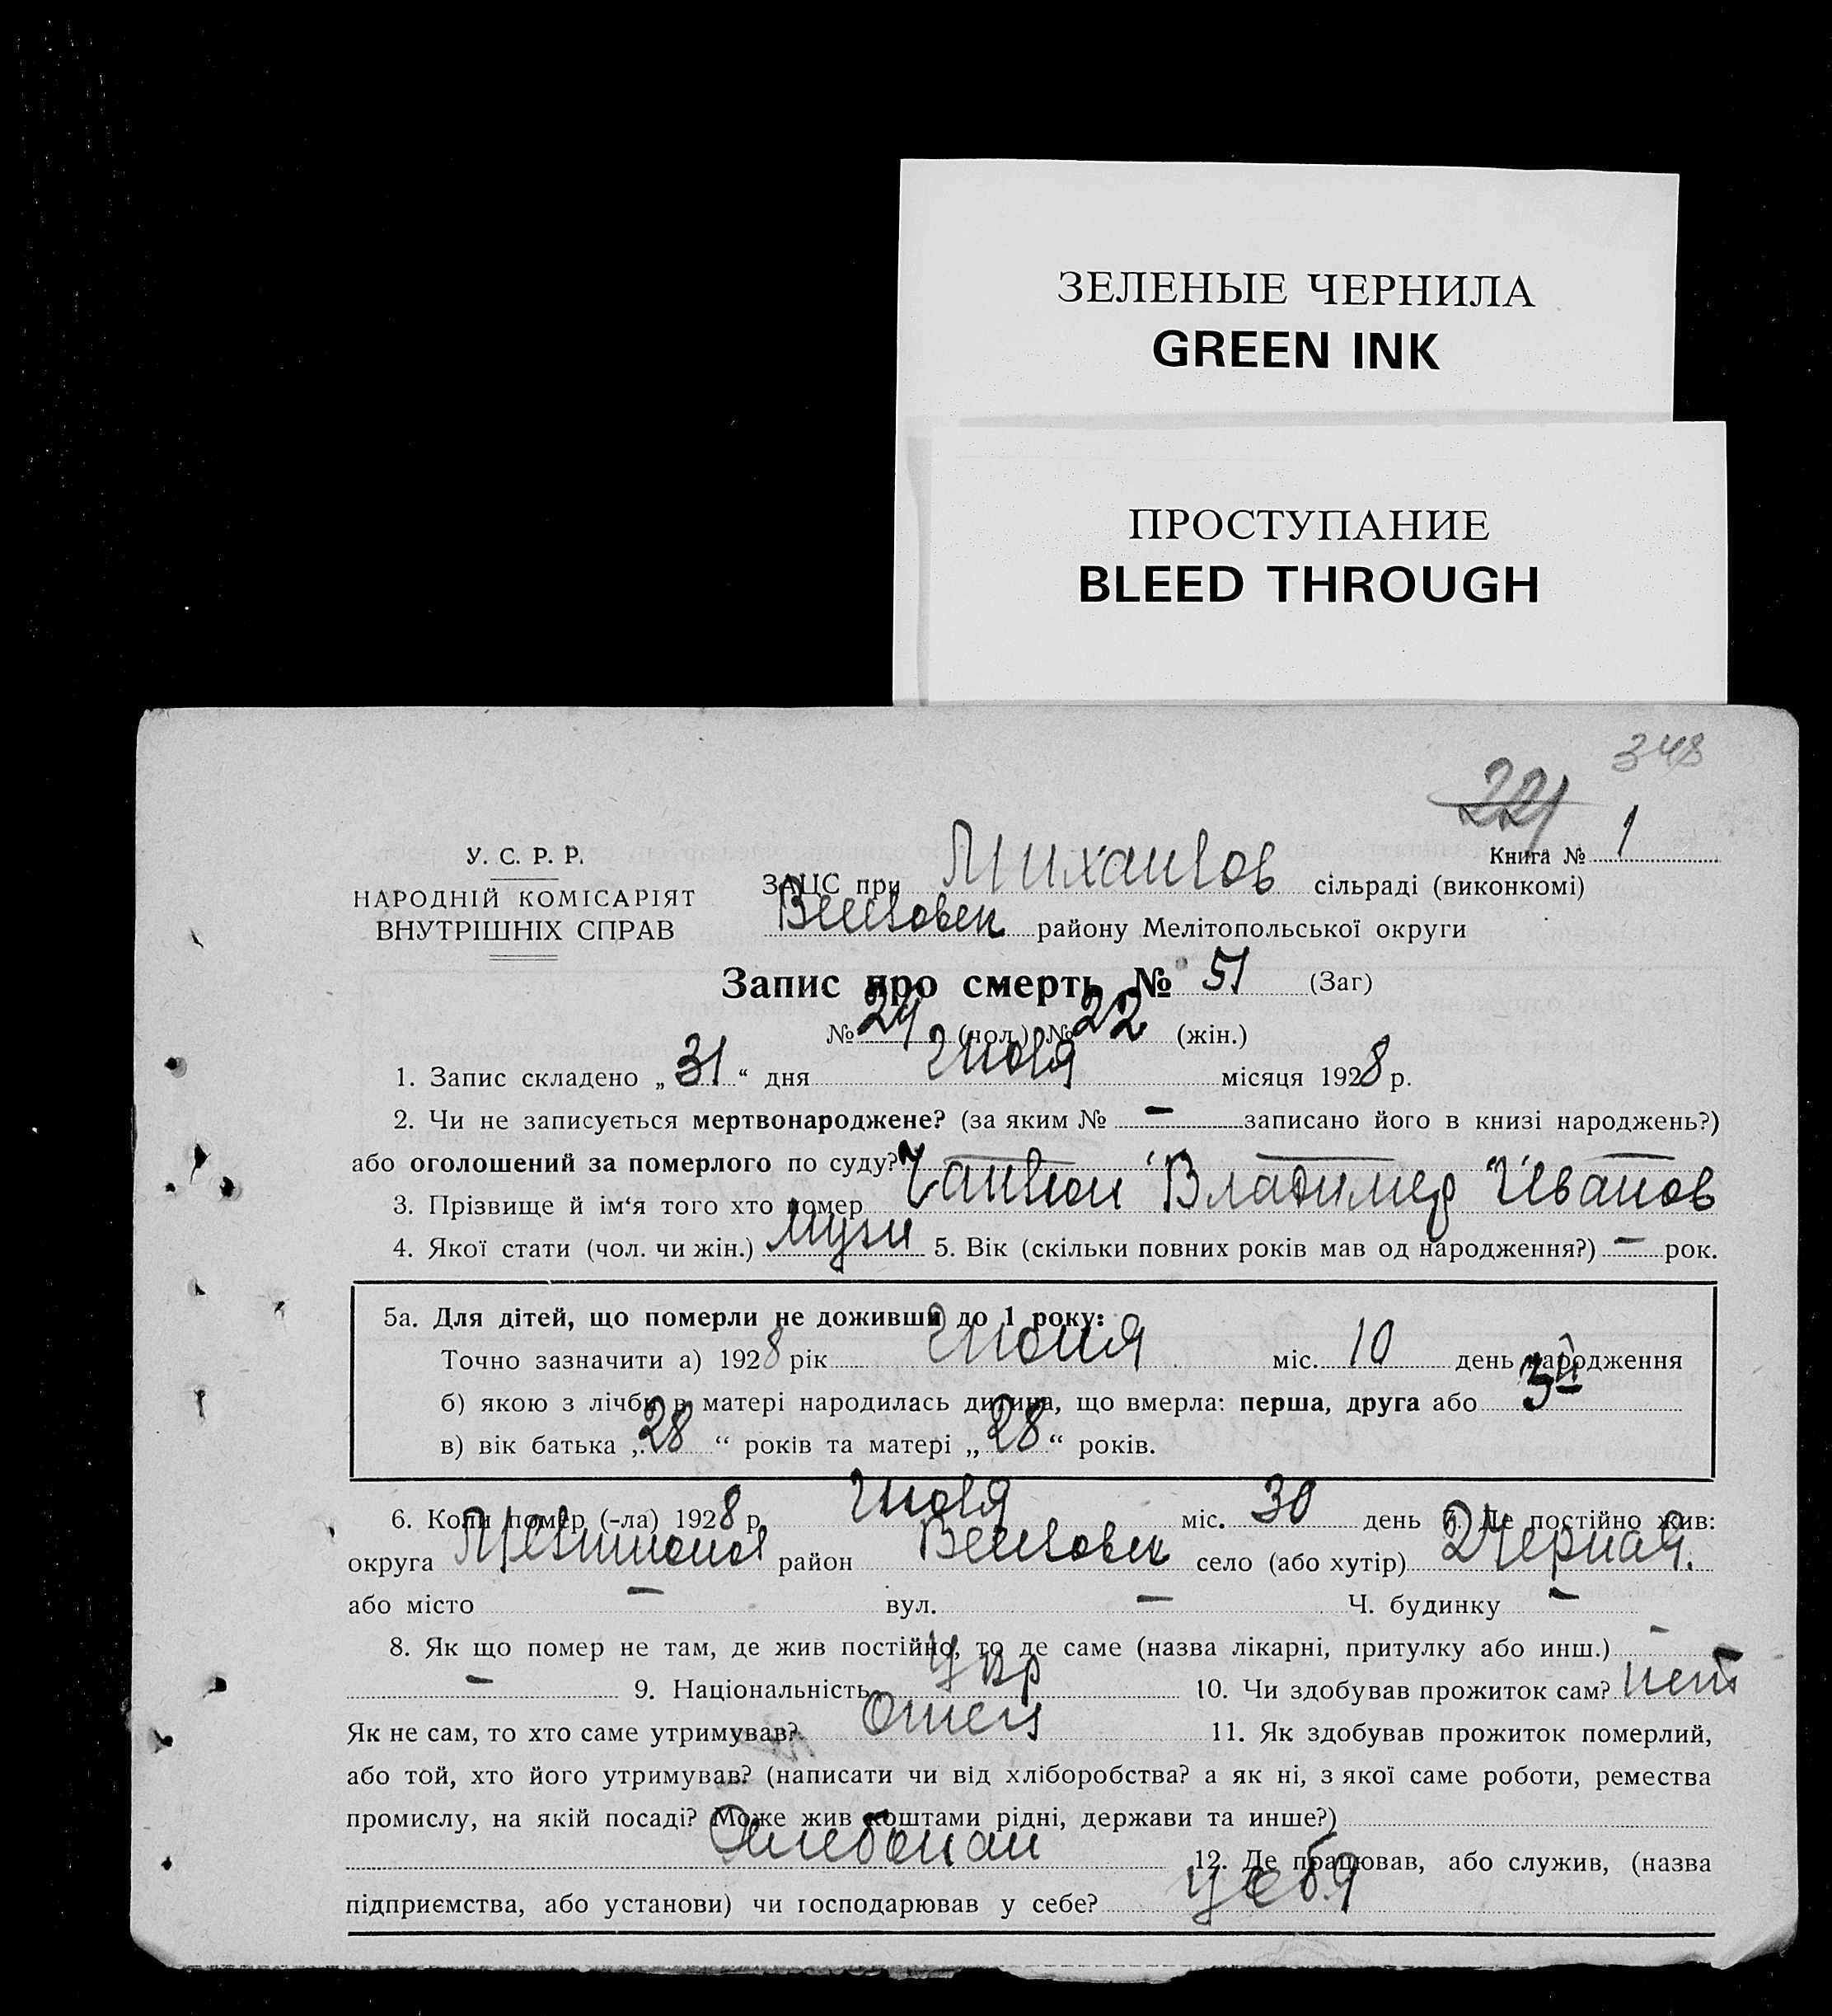 ЗЕЛЕНЫЕ ЧЕРНИЛА
GREEN INK
ПРОСТУПАНИЕ
BLEED THROUGH
348
221
У. С. Р. Р.
НАРОДНІЙ КОМІСАРІЯТ
ВНУТРІШНІХ СПРАВ
Книга № 1
ЗАЦС при Михайлов сільраді (виконкомі)
району Мелітопольської округи
Запис про смерть № 51 (Заг)
№ 29 (чол.) № 22 (жін.)
1. Запис складено „ 31 “ дня Июля місяця 1928 р.
2. Чи не записується мертвонароджене? (за яким № — записано його в книзі народжень?)
або оголошений за померлого по суду?
3. Прізвище й ім‘я того хто помер Владимир Иванов
4. Якої стати (чол. чи жін.) 5. Вік (скільки повних років мав од народження?) — рок.
5а. Для дітей, що померли не доживши до 1 року:
Точно зазначити а) 1928 рік Июня міс. 10 день народження
б) якою з лічби в матері народилась дитина, що вмерла: перша, друга або 3й
в) вік батька „ 28 “ років та матері „ 28 “ років.
6. Коли помер (-ла) 1928 р. Июля міс. 30 день 7. Де постійно жив:
округа район село (або хутір)
або місто — вул. — Ч. будинку —
8. Як що помер не там, де жив постійно, то де саме (назва лікарні, притулку або инш.) —
— 9. Національність Укр 10. Чи здобував прожиток сам? нет
Як не сам, то хто саме утримував? Отец 11. Як здобував прожиток померлий,
або той, хто його утримував? (написати чи від хліборобства? а як ні, з якої саме роботи, ремества
промислу, на якій посаді? Може жив коштами рідні, держави та инше?)
12. Де працював, або служив, (назва
підприємства, або установи) чи господарював у себе? у себя